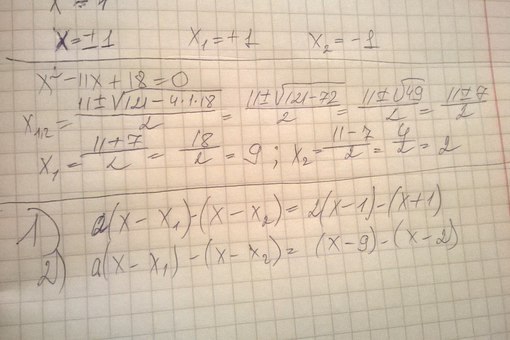 x = ±1    x₁ = +1    x₂ = -1
x² - 11x + 18 = 0
x₁,₂ = (11 ± √(121 - 4·1·18))/2 = (11 ± √(121 - 72))/2 = (11 ± √49)/2 = (11 ± 7)/2
x₁ = (11 + 7)/2 = 18/2 = 9 ; x₂ = (11 - 7)/2 = 4/2 = 2
1) a(x - x₁) - (x - x₂) = 2(x - 1) - (x + 1)
2) a(x - x₁) - (x - x₂) = (x - 9) - (x - 2)